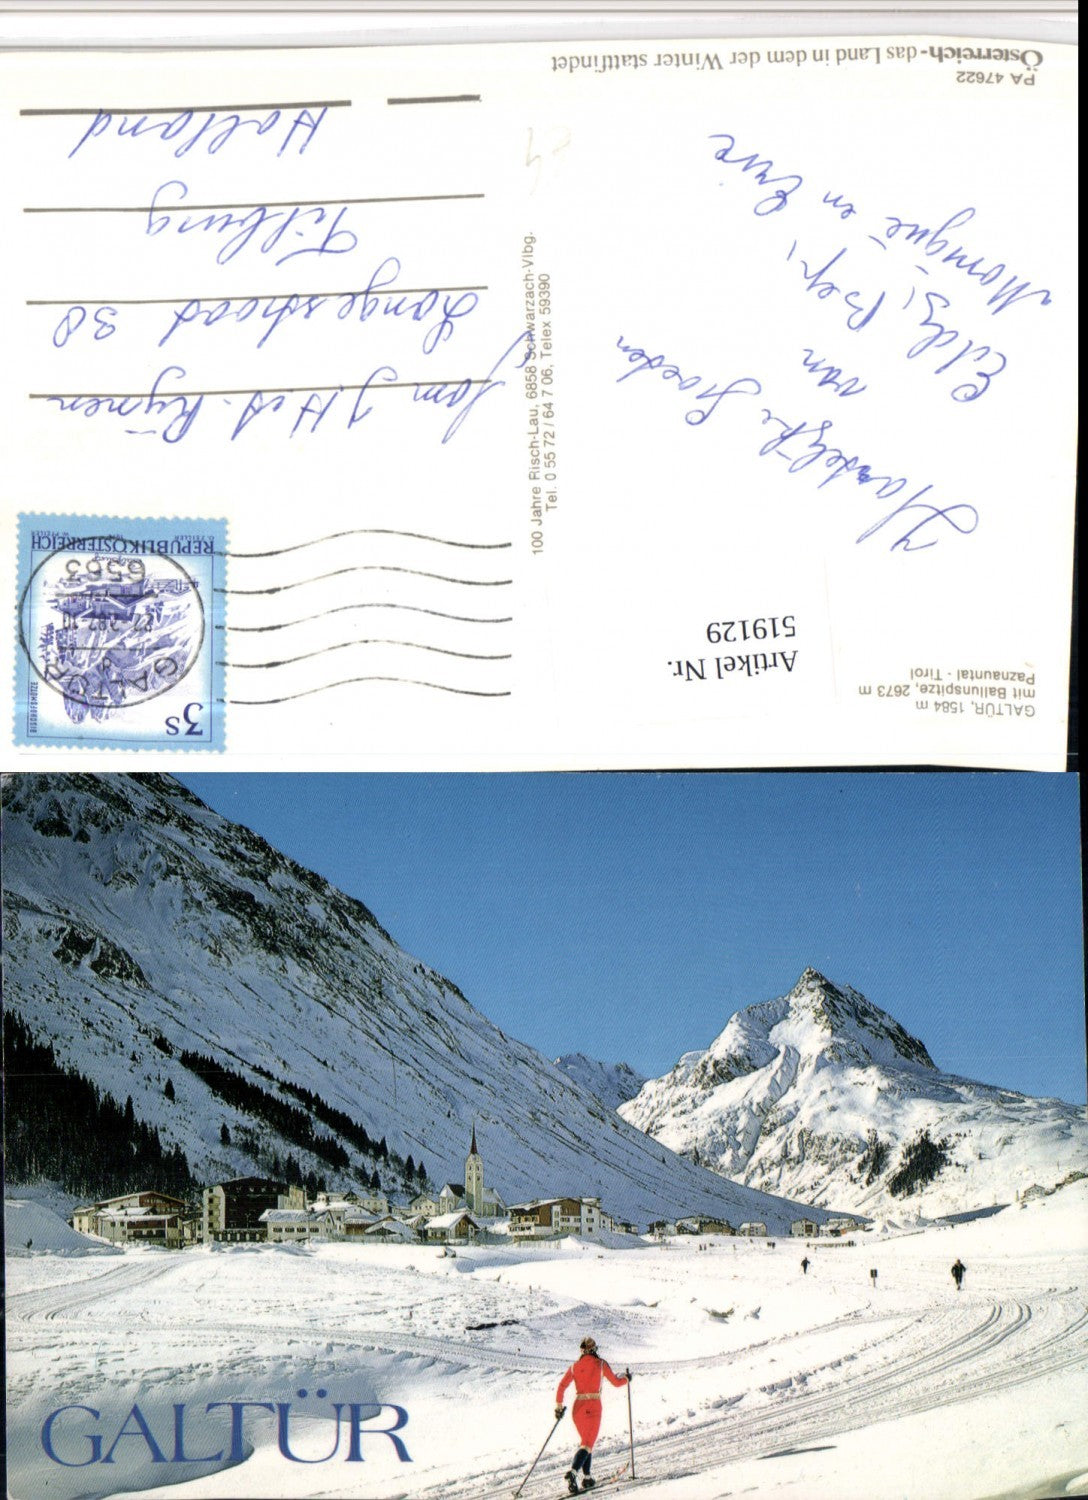 GALTÜR, 1584 m
mit Ballunspitze, 2673 m
Paznauntal - Tirol
Artikel Nr.
519129
Hartelijke Groeten
van
Eddy, Bep,
Monique en Erik
PA 47622
Österreich - das Land in dem der Winter stattfindet
100 Jahre Risch-Lau, 6858 Schwarzach-Vlbg.
Tel. 0 55 72 / 64 7 06, Telex 59390
3 S
BISCHOFSMÜTZE
REPUBLIK ÖSTERREICH
GALTÜR
6563
Fam J.H.A. Rijnen
Langeschoad 38
Tilburg
Holland
GALTÜR